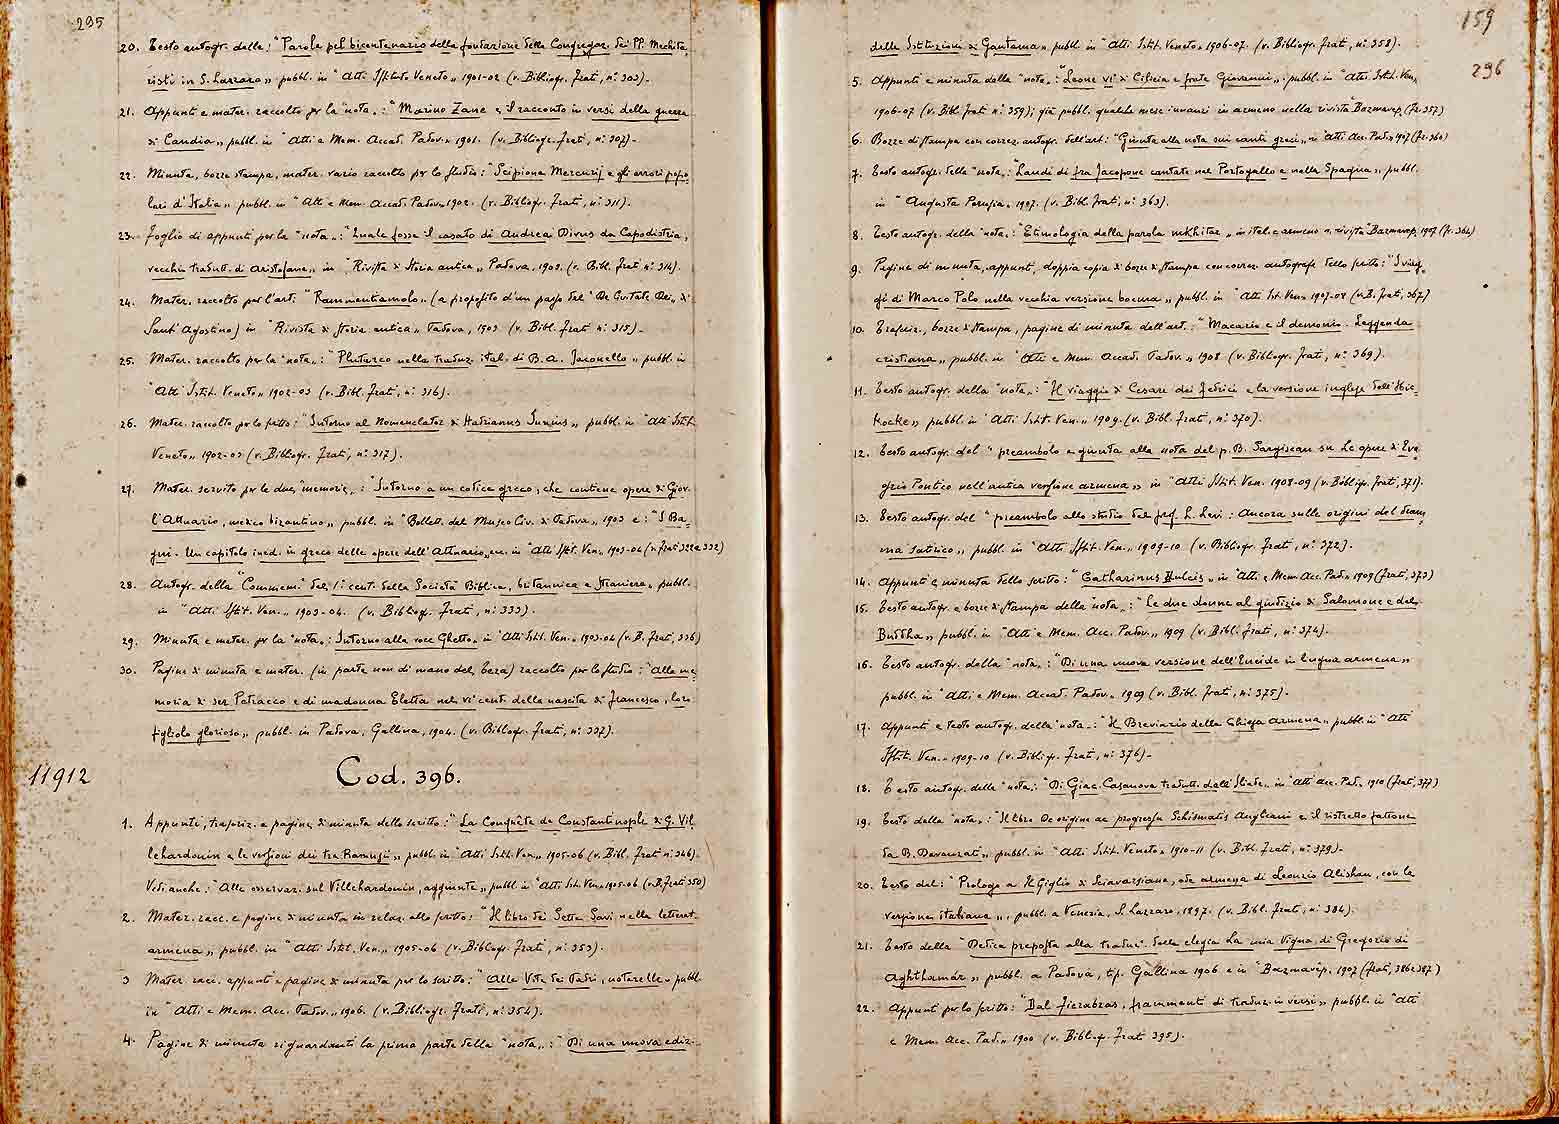 295
20. Testo autogr. delle: "Parole pel bicentenario della fondazione della Congregaz. dei PP. Mechita-
risti in S. Lazzaro„ pubbl. in "Atti Istituto Veneto„ 1901-02 (v. Bibliogr. Frati, n: 303).
21. Appunti e mater. raccolto per la "nota„: "Marino Zane e il racconto in versi della guerra
di Candia„ pubbl. in "Atti e Mem. Accad. Padov.„ 1901. (v. Bibliogr. Frati, n: 307).
22. Minuta, bozze stampa, mater. vario raccolto per lo studio: "Scipione Mercurij e gli errori popo-
lari d'Italia„ pubbl. in "Atti e Mem. Accad. Padov.„ 1902. (v. Bibliogr. Frati, n: 311).
23. Foglio di appunti per la "nota„: "Quale fosse il casato di Andrea Divus da Capodistria,
vecchio tradutt. di Aristofane„ in "Rivista di Storia antica„ Padova, 1903. (v. Bibl. Frati n: 314).
24. Mater. raccolto per l'art: "Rammentiamolo„ (a proposito d'un passo del "De Civitate Dei„ di
Sant'Agostino) in "Rivista di storia antica„ Padova, 1903 (v. Bibl. Frati n: 315).
25. Mater. raccolto per la "nota„: "Plutarco nella traduz. ital. di B. A. Jaconello„ pubbl. in
"Atti Istit. Veneto„ 1902-03 (v. Bibl. Frati, n: 316).
26. Mater. raccolto per lo scritto: "Intorno al Nomenclator di Hadrianus Junius„ pubbl. in "Atti Istit.
Veneto„ 1902-03 (v. Bibliogr. Frati, n: 317).
27. Mater. servito per le due "memorie„: "Intorno a un codice greco, che contiene opere di Giov.
l'Attuario, medico bizantino„ pubbl. in "Bollett. del Museo Civ. di Padova„ 1903 e: "I Ba-
gni. Un capitolo ined. in greco delle opere dell'Attuario„ ecc. in "Atti Istit. Ven.„ 1903-04 (v. Frati 322 e 332)
28. Autogr. della "Commem." del 1: cent. della Società Biblica, britannica e straniera„ pubbl.
in "Atti Istit. Ven.„ 1903-04. (v. Bibliogr. Frati, n: 333).
29. Minuta e mater. per la "nota„: Intorno alla voce Ghetto„ in "Atti Istit. Ven.„ 1903-04 (v. B. Frati, 336)
30. Pagine di minuta e mater. (in parte non di mano del Teza) raccolto per lo studio: "Alla me-
moria di ser Petracco e di madonna Eletta nel vi: cent. della nascita di Francesco, loro
figliolo glorioso„ pubbl. in Padova, Gallina, 1904. (v. Bibliogr. Frati, n: 337).
11912
Cod. 396.
1. Appunti, trascriz. e pagine di minuta dello scritto: "La Conquête de Constantinople di G. Vil-
lehardouin e le versioni dei tre Ramusii„ pubbl. in "Atti Istit. Ven.„ 1905-06 (v. Bibl. Frati n: 346).
Vedi anche: "Alle osservaz. sul Villehardouin, aggiunte„ pubbl. in "Atti Istit. Ven.„ 1905-06 (v. B. Frati 350)
2. Mater. racc. e pagine di minuta in relaz. allo scritto: "Il libro dei Sette Savi nella letterat.
armena„ pubbl. in "Atti Istit. Ven.„ 1905-06 (v. Bibliogr. Frati, n: 353).
3 Mater. racc. appunti e pagine di minuta per lo scritto: "Alle Vite dei Padri, noterelle„ pubbl.
in "Atti e Mem. Acc. Padov.„ 1906. (v. Bibliogr. Frati, n: 354).
4. Pagine di minuta riguardanti la prima parte della "nota„: "Di una nuova ediz.
159
296
delle Istituzioni di Gautama„ pubbl. in "Atti Istit. Veneto„ 1906-07. (v. Bibliogr. Frati, n: 358).
5. Appunti e minuta della "nota„: "Leone VI: di Cilicia e frate Giovanni„ pubbl. in "Atti Istit. Ven.„
1906-07 (v. Bibl. Frati n: 359); già pubbl. qualche mese innanzi in armeno nella rivista "Bazmavep„ (Fr. 357)
6. Bozze di stampa con correz. autogr. dell'art: "Giunta alla nota sui canti greci„ in "Atti Acc. Pad.„ 1907 (Fr. 360)
7. Testo autogr. della "nota„: "Laudi di fra Jacopone cantate nel Portogallo e nella Spagna„ pubbl.
in "Augusta Perusia„ 1907. (v. Bibl. Frati, n: 363).
8. Testo autogr. della "nota„: "Etimologia della parola mKhitar„ in ital. e armeno n. rivista "Bazmavep„ 1907 (Fr. 364)
9. Pagine di minuta, appunti, doppia copia di bozze di stampa con correz. autografe dello scritto: "I viag-
gi di Marco Polo nella vecchia versione boema„ pubbl. in "Atti Ist. Ven.„ 1907-08 (v. B. Frati, 367)
10. Trascriz., bozze di stampa, pagine di minuta dell'art.: "Macario e il demonio. Leggenda
cristiana„ pubbl. in "Atti e Mem. Accad. Padov.„ 1908 (v. Bibliogr. Frati, n: 369).
11. Testo autogr. della "nota„: "Il viaggio di Cesare dei Fedrici e la versione inglese dell'Hic-
kocke„ pubbl. in "Atti Istit. Ven.„ 1909. (v. Bibl. Frati, n: 370).
12. Testo autogr. del "preambolo e giunta alla nota del p. B. Sargisean su Le opere di Eva-
grio Pontico nell'antica versione armena„ in "Atti Istit. Ven. 1908-09 (v. Bibliogr. Frati, 371).
13. Testo autogr. del "preambolo allo studio del prof. L. Levi: Ancora sulle origini del dram-
ma satirico„ pubbl. in "Atti Istit. Ven.„ 1909-10 (v. Bibliogr. Frati, n: 372).
14. Appunti e minuta dello scritto: "Catharinus Dulcis„ in "Atti e Mem. Acc. Pad.„ 1909 (Frati, 373)
15. Testo autogr. e bozze di stampa della "nota„: "Le due donne al giudizio di Salomone e del
Buddha„ pubbl. in "Atti e Mem. Acc. Padov.„ 1909 (v. Bibl. Frati, n: 374).
16. Testo autogr. della "nota„: "Di una nuova versione dell'Eneide in lingua armena„
pubbl. in "Atti e Mem. Accad. Padov.„ 1909 (v. Bibl. Frati, n: 375).
17. Appunti e testo autogr. della "nota„: "Il Breviario della Chiesa armena„ pubbl. in "Atti
Istit. Ven.„ 1909-10 (v. Bibliogr. Frati, n: 376).
18. Testo autogr. della "nota„: "Di Giac. Casanova tradutt. dell'Iliade„ in "Atti Acc. Pad.„ 1910 (Frati, 377)
19. Testo della "nota„: "Il libro De origine ac progressu Schismatis Anglicani e il ristretto fattone
da B. Davanzati„ pubbl. in "Atti Istit. Veneto„ 1910-11 (v. Bibl. Frati, n: 379).
20. Testo del: "Prologo a Il Giglio di Sciavarsciana, ode armena di Leonzio Alishan, con la
versione italiana„, pubbl. a Venezia, S. Lazzaro, 1897. (v. Bibl. Frati, n: 384).
21. Testo della "Dedica preposta alla traduz. della elegia La mia Vigna, di Gregorio di
Aghthamar„ pubbl. a Padova, tip. Gallina 1906 e in "Bazmavep„ 1907 (Frati, 386 e 387)
22. Appunti per lo scritto: "Dal Fierabras, frammenti di traduz. in versi„ pubbl. in "Atti
e Mem. Acc. Pad.„ 1900 (v. Bibliogr. Frati 395).